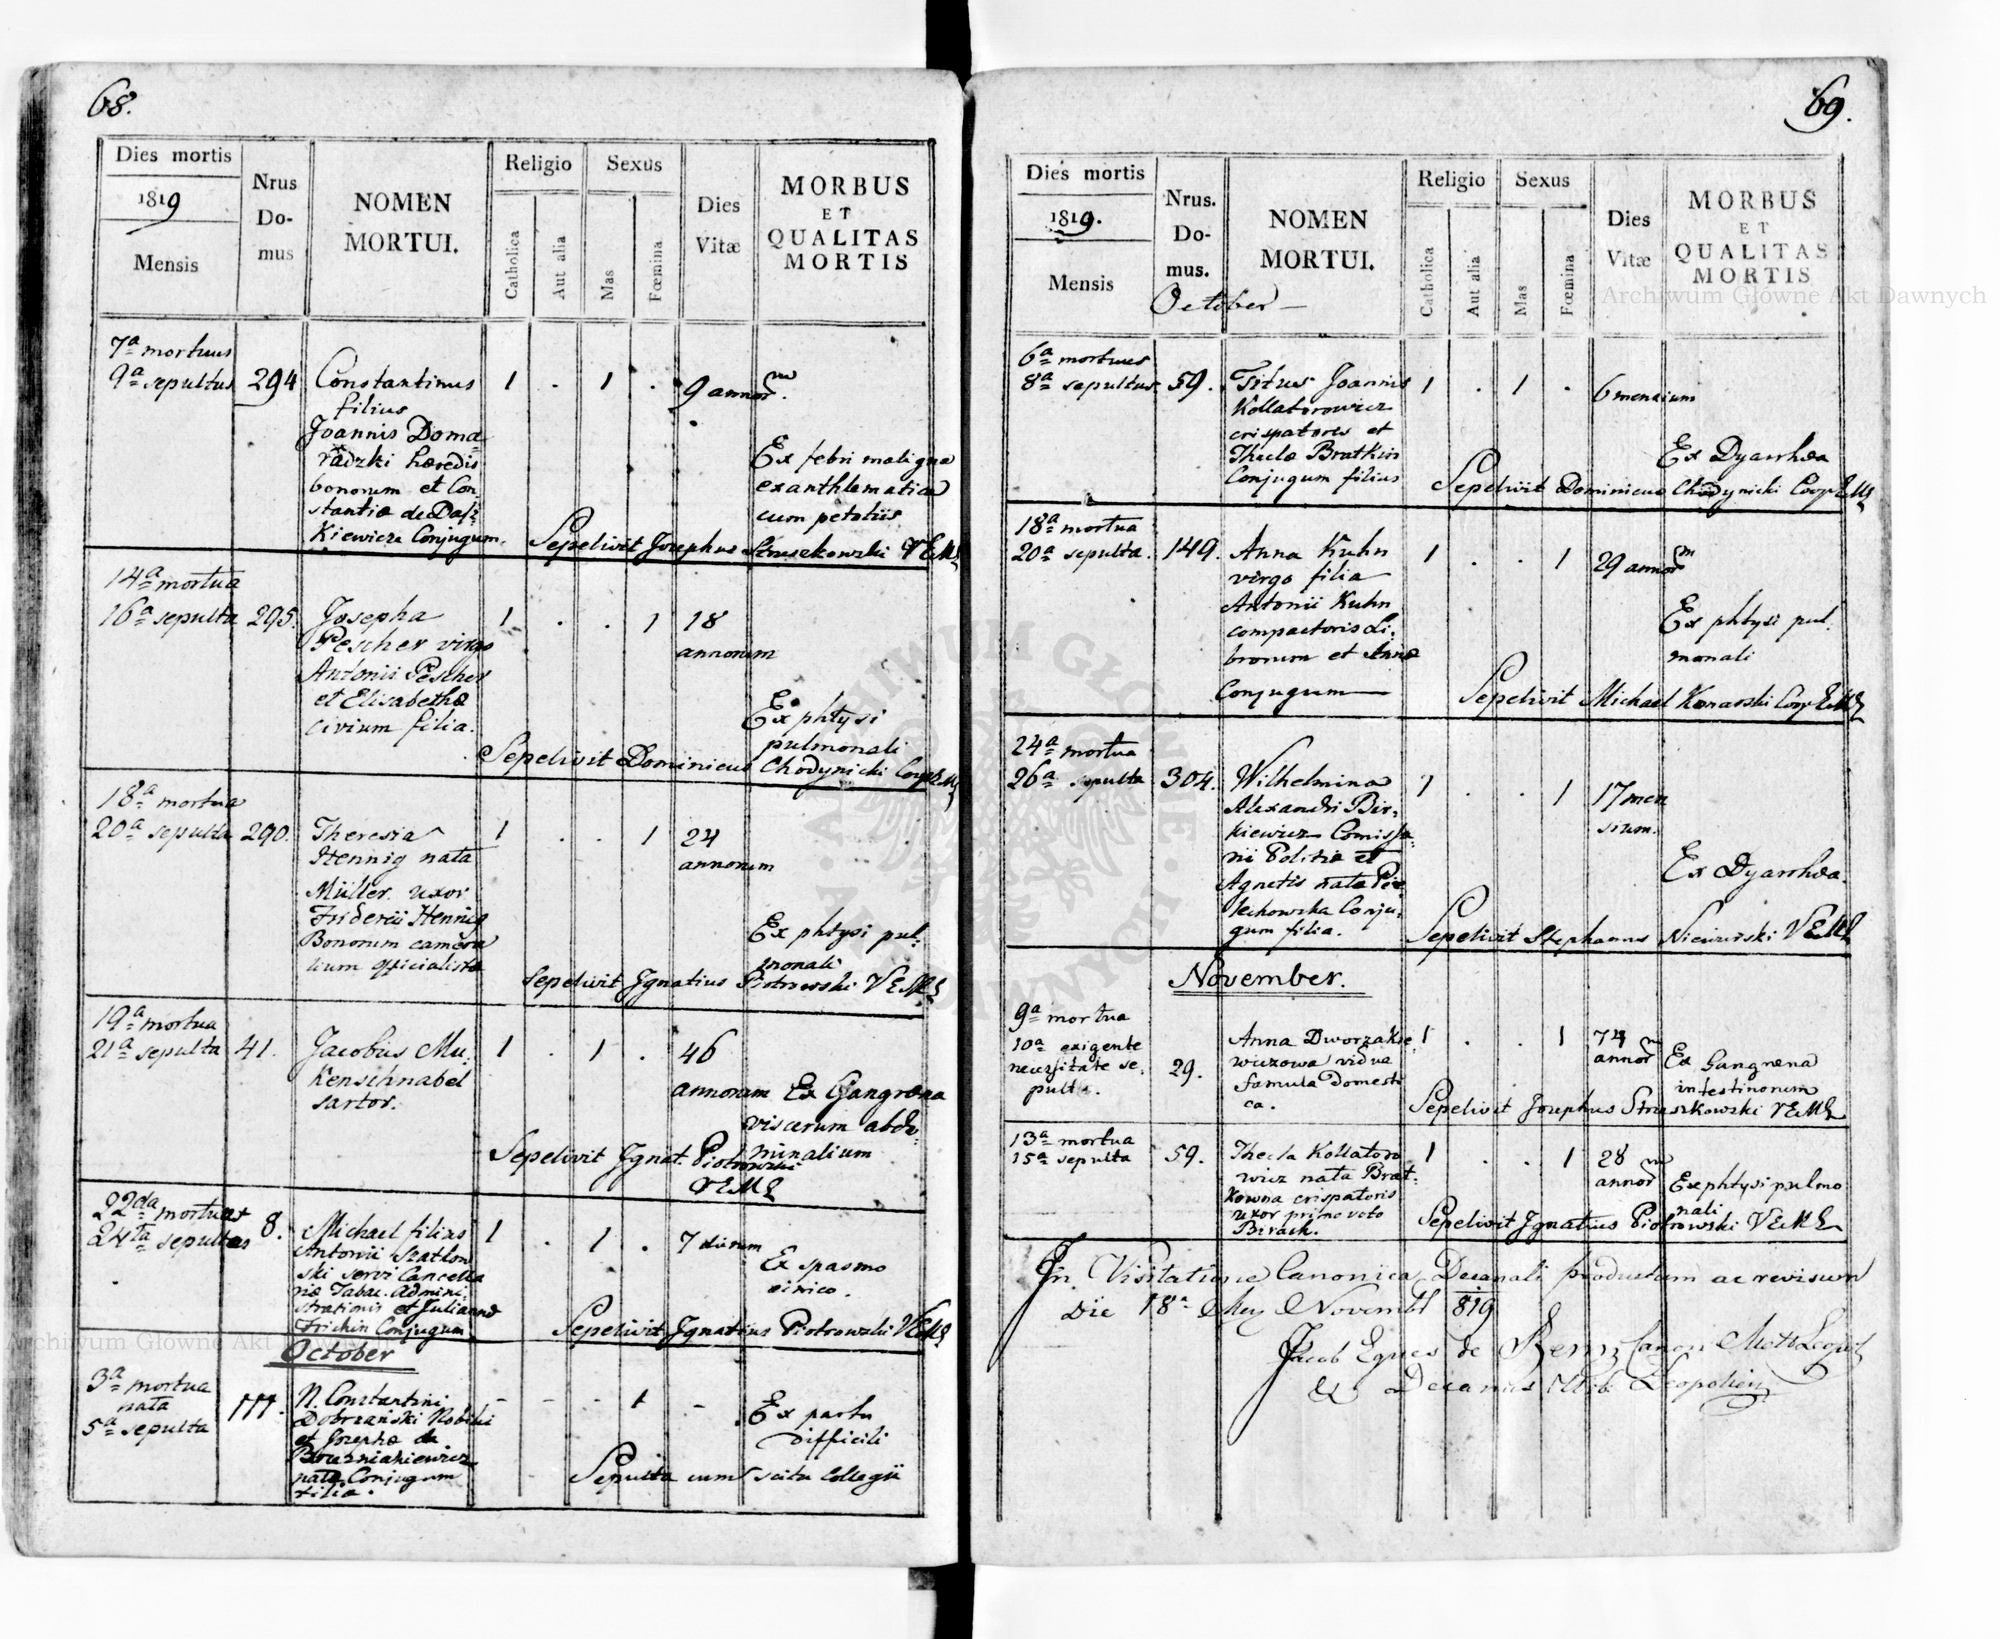 68.
Dies mortis
1819
Mensis
Nrus
Do-
mus
NOMEN
MORTUI.
Religio
Catholica
Aut alia
Sexus
Mas
Fœmina
Dies
Vitæ
MORBUS
ET
QUALITAS
MORTIS
7a mortuus
9a sepultus 294 Constantinus 1 . 1 . 9 annorm.
filius
Joannis Doma
radzki hæredis
bonorum et Con
stantiæ de Dasz
Kiewicze Conjugum.
Ex febri maligna
exanthlematica
cum petotiis
Sepelivit Josephus Struszkowski VEML
14a mortua
16a sepulta 295. Josepha 1 . . 1 18
annorum
Pescher virgo
Antonii Pescher
et Elisabethæ
civium filia.
Ex phtysi
pulmonali
Sepelivit Dominicus Chodynicki Coop EML
18a mortua
20a sepulta 290. Theresia 1 . . 1 24
annorum
Hennig nata
Müller uxor
Friderici Hennig
Bonorum camera
lium officialistæ
Ex phtysi pul-
monali
Sepelivit Ignatius Piotrowski VEML
19a mortua
21a sepulta 41. Jacobus Mu. 1 . 1 . 46
Kenschnabel
sartor.
annorum Ex Gangræna
viscerum abdo-
minalium
Sepelivit Ignat. Piotrowski
VEML
22da mortuus
24ta sepultus 8. Michael filius 1 . 1 . 7 dierum
Antonii Szatkow
ski servi Cancella
riæ Tabac. Admini-
strationis et Juliannæ
Frichin Conjugum
Ex spasmo
cinico.
Sepelivit Ignatius Piotrowski VEML
October
3a mortua
nata
5a sepulta 111. N. Constantini - - - 1 -
Dobrzański Nobilis
et Josephæ de
nata Conjugum
filia.
Ex partu
difficili
Sepulta cum scitu Collegii
69.
Dies mortis
1819.
Mensis
Nrus.
Do-
mus.
NOMEN
MORTUI.
Religio
Catholica
Aut alia
Sexus
Mas
Fœmina
Dies
Vitæ
MORBUS
ET
QUALITAS
MORTIS
October
6a mortuus
8a sepultus 59. Titus Joannis 1 . 1 . 6 mensium
Kollatorowicz
crispatoris et
Theclæ Bratkin
Conjugum filius
Ex Dyarrhæa
Sepelivit Dominicus Chodynicki Coop EML
18a mortua
20a sepulta. 149. Anna Kuhn 1 . . 1 29 annorm
virgo filia
Antonii Kuhn
compactoris Li-
brorum et Annæ
Conjugum
Ex phtysi pul.
monali
Sepelivit Michael Konarski Coop EML
24a mortua
26a sepulta 304. Wilhelmina 1 . . 1 17 men
sium.
Alexandri Bir-
kiewicz Comissa-
rii Politiæ et
Agnetis nata Pie
kchowska Conju-
gum filia.
Ex Dyarrhæa.
Sepelivit Stephanus Niewirski VEML
November.
9a mortua
10a exigente
necessitate se-
pulta. 29. Anna Dworzakie 1 . . 1 74
annorm
wiczowa vidua
famula Domesti
ca.
Ex Gangræna
intestinorum
Sepelivit Josephus Struszkowski VEML
13a mortua
15a sepulta 59. Thecla Kollatoro 1 . . 1 28
annorm
wicz nata Brat-
kowna crispatoris
uxor primo voto
Birack.
Ex phtysi pulmo
nali
Sepelivit Ignatius Piotrowski VEML
In Visitatione Canonica Decanali productum ac revisum
Die 18a Mens Novembr 819
Jacob Eques de Canon Metr Leopol
& Decanus Leopolien
Archiwum Główne Akt Dawnych
Archiwum Główne Akt Dawnych
ARCHIWUM GŁÓWNE AKT DAWNYCH